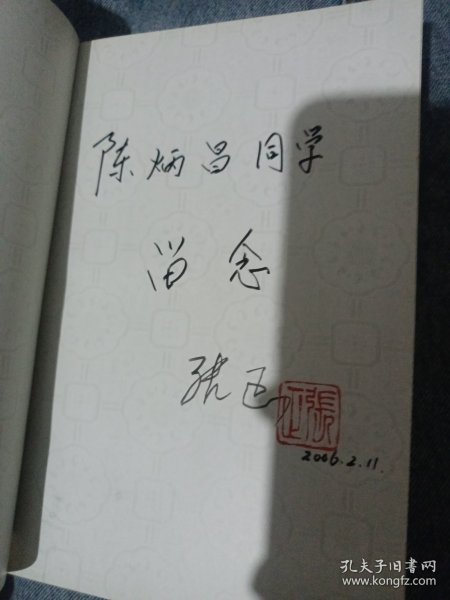 陈炳昌同学
留念
张正
張正
2006.2.11.
孔夫子旧书网
www.kongfz.com